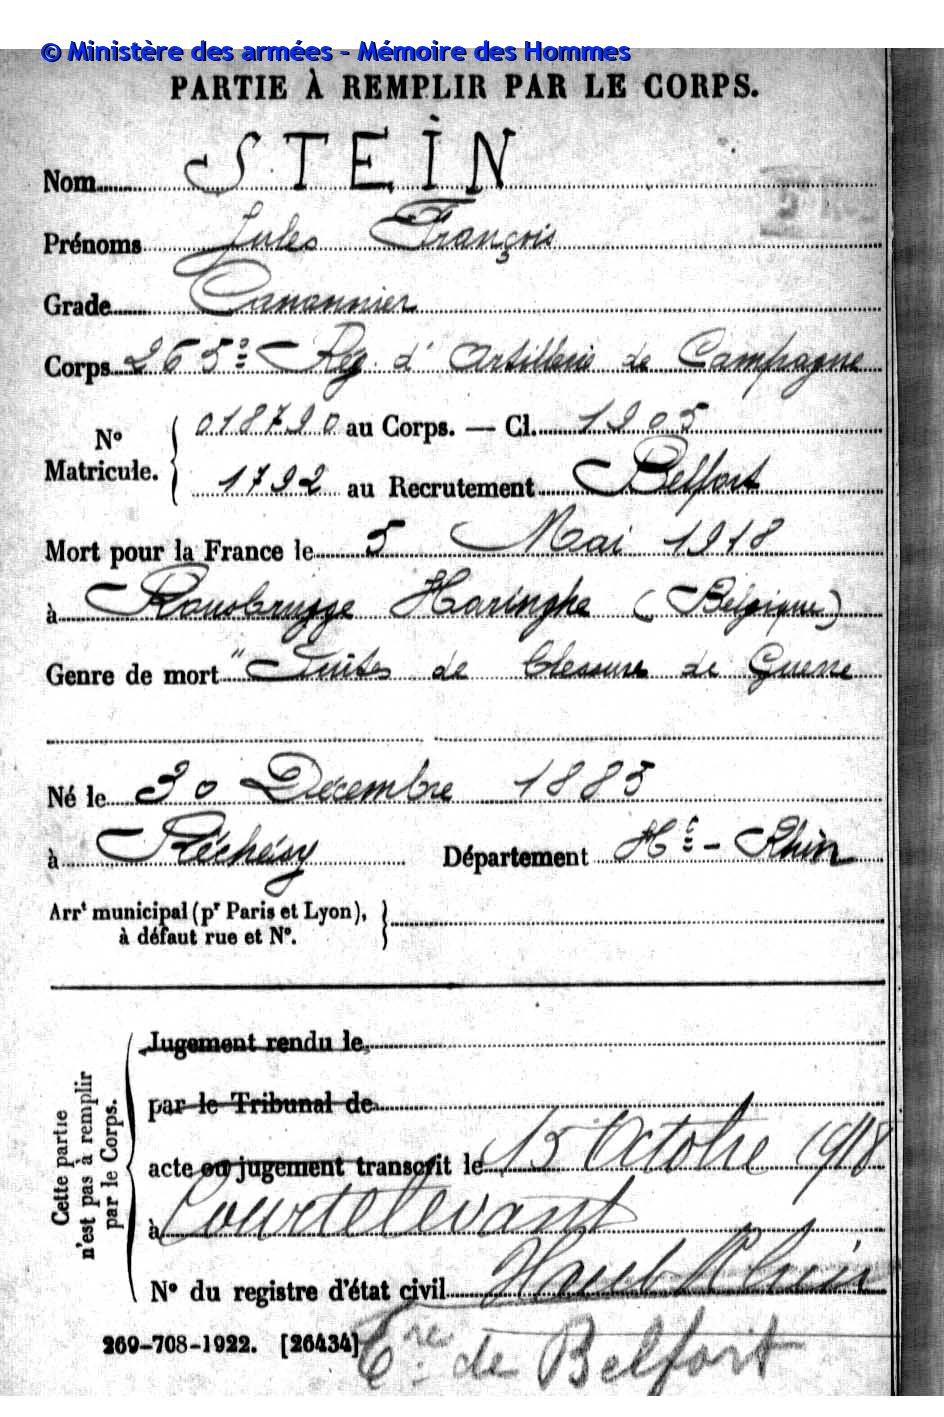 © Ministère des armées - Mémoire des Hommes
PARTIE À REMPLIR PAR LE CORPS.
Nom STEIN
Prénoms Jules François
Grade Canonnier
Corps 265e Rég. d'Artillerie de Campagne
N° Matricule. 018790 au Corps. — Cl. 1905
1792 au Recrutement Belfort
Mort pour la France le 5 Mai 1918
à Rousbrugge Haringhe (Belgique)
Genre de mort "Suites de blessures de Guerre
Né le 30 Décembre 1885
à Réchésy Département Ht - Rhin
Arrt municipal (pr Paris et Lyon),
à défaut rue et N°.
Cette partie
n'est pas à remplir
par le Corps.
Jugement rendu le
par le Tribunal de
acte ou jugement transcrit le 15 Octobre 1918
à Courtelevant
N° du registre d'état civil Haut Rhin
269-708-1922. [26434] Tre de Belfort